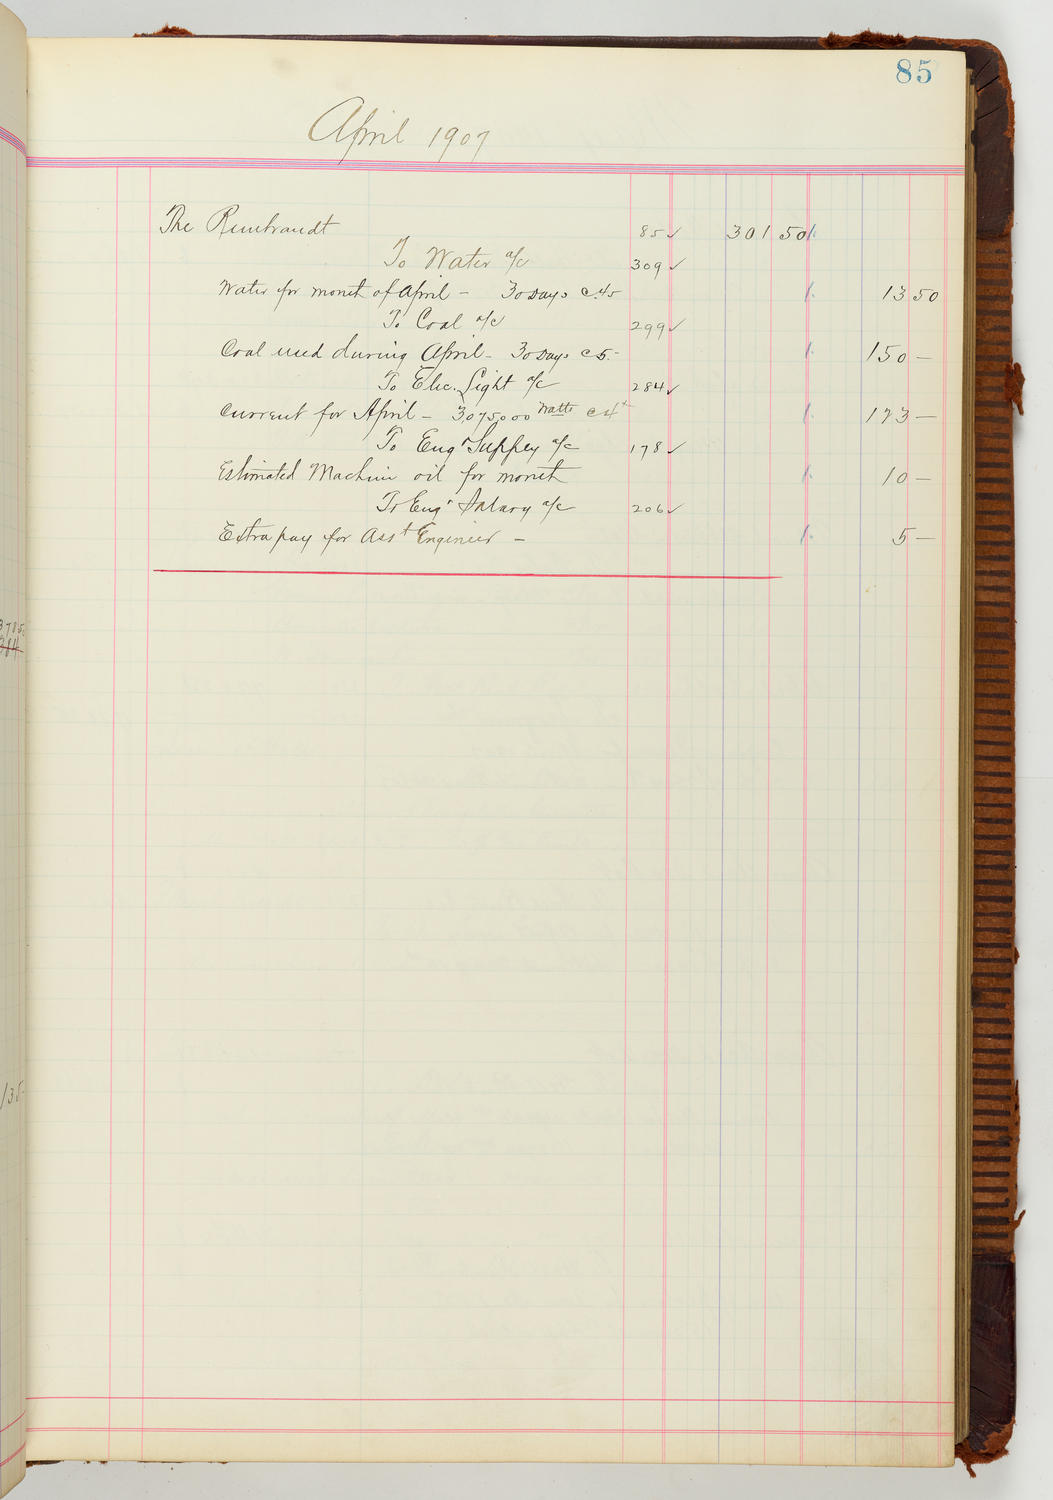 85
April 1907
The Rembrandt 85 ✓ 301 50
To Water a/c 309 ✓
Water for month of April – 30 Days @ 45 13 50
To Coal a/c 299 ✓
Coal used during April – 30 Days @ 5.- 150 —
To Elec. Light a/c 284 ✓
Current for April – 3,075,000 Watts @ 4¢ 123 —
To Engr Supply a/c 178 ✓
Estimated Machine oil for month 10 —
To Engr Salary a/c 206 ✓
Extra pay for Asst Engineer – 5 —
135